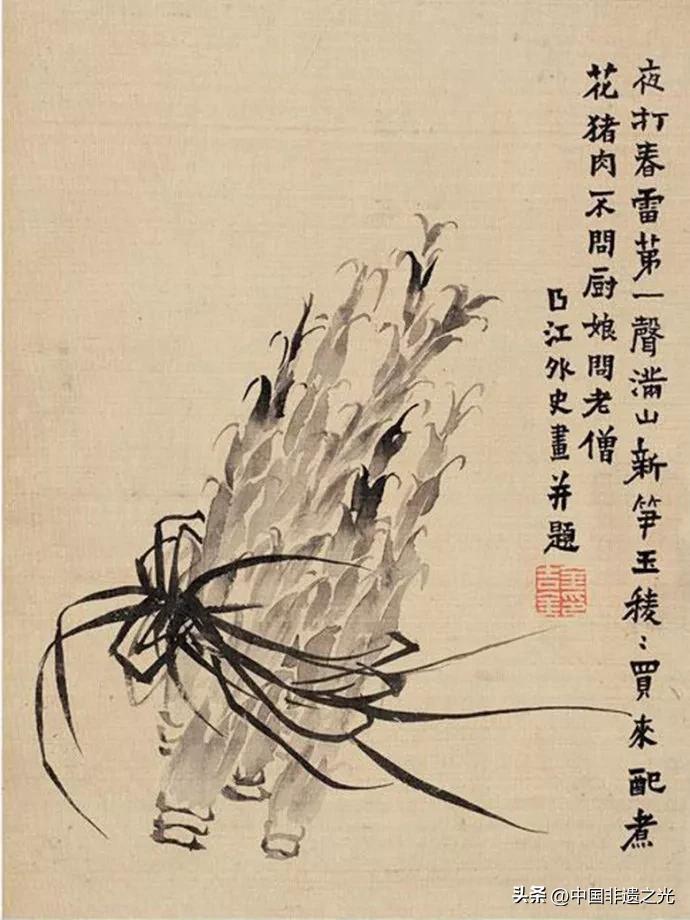 夜打春雷苐一聲滿山新笋玉稜:買來配煮
花猪肉不問厨娘問老僧
曲江外史畫并題
头条 @中国非遗之光